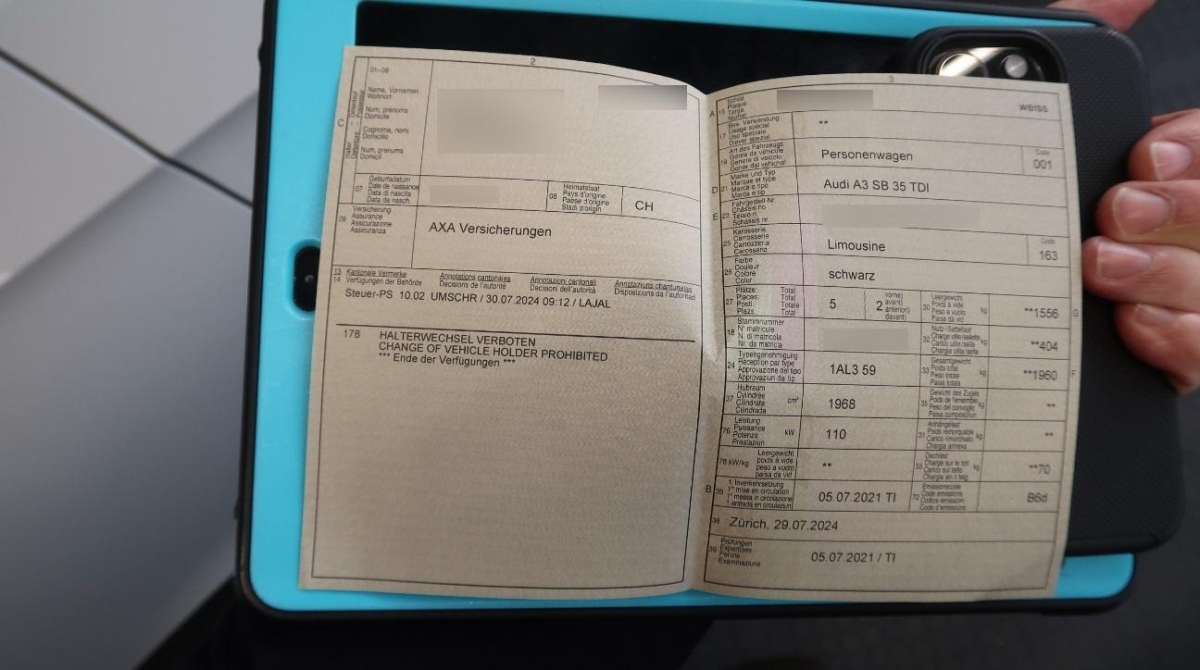 2
01-06
Name, Vornamen
Wohnort
Nom, prénoms
Domicile
C
Cognome, nomi
Domicilio
Num, prenums
Domicil
07
Geburtsdatum
Date de naissance
Data di nascita
Data da nasch.
08
Heimatstaat
Pays d'origine
Paese d'origine
Stadi d'origin
CH
Versicherung
Assurance
Assicurazione
Assicuranza
AXA Versicherungen
13
14
Kantonale Vermerke
Verfügungen der Behörde
Annotations cantonales
Décisions de l'autorité
Annotazioni cantonali
Decisioni dell'autorità
Annotaziuns chantunalas
Disposiziuns da l'autoritad
Steuer-PS 10.02 UMSCHR / 30.07.2024 09:12 / LAJAL
178 HALTERWECHSEL VERBOTEN
CHANGE OF VEHICLE HOLDER PROHIBITED
*** Ende der Verfügungen ***
3
A
15
Schild
Plaque
Targa
weiss
17
Bes. Verwendung
Usage spécial
Uso speciale
**
19
Art des Fahrzeugs
Genre de véhicule
Genere di veicolo
Gener dal vehichel
Personenwagen
Code
001
D
21
Marke und Typ
Marque et type
Marca e tipo
Marca e tip
Audi A3 SB 35 TDI
E
23
Fahrgestell-Nr.
Châssis no
Telaio n.
Schassis nr.
25
Karosserie
Carrosserie
Carrozzeria
Carossaria
Limousine
Code
163
26
Farbe
Couleur
Colore
Color
schwarz
27
Plätze Total
Places: Total
Posti: Totale
Plazs Total
5
2
vorne)
avant)
anteriori)
davant)
30
Leergewicht
Poids à vide
Peso a vuoto
Paisa da vid
kg
**1556
G
18
Stammnummer
N° matricule
N. di matricola
Nr. da matricla
32
Nutz-/Sattellast
Charge utile/sellette
Carico utile/sella
Chargia utila/sella
kg
**404
24
Typengenehmigung
Réception par type
Approvazione del tipo
Approvaziun dal tip
1AL3 59
33
Gesamtgewicht
Poids total
Peso totale
Paisa totala
kg
**1960
F
37
Hubraum
Cylindrée
Cilindrata
Cilindrada
cm³
1968
35
Gewicht des Zuges
Poids de l'ensemble
Peso del convoglio
Paisa cumposiziun
kg
**
76
Leistung
Puissance
Potenza
Prestaziun
kW
110
31
Anhängelast
Poids remorquable
Carico rimorchiato
Chargia annexa
kg
**
78 kW/kg
Leergewicht
poids à vide
peso a vuoto
paisa da vid
**
55
Dachlast
Charge sur le toit
Carico sul tetto
Chargia sin il tetg
kg
**70
B
36
1. Inverkehrsetzung
1re mise en circulation
1a messa in circolazione
1. entrada en circulaziun
05.07.2021 TI
72
Emissionscode
Code émissions
Codice emissioni
Code d'emissiuns
B6d
38
Zürich, 29.07.2024
39
Prüfungen
Expertises
Perizie
Examinaziuns
05.07.2021 / TI